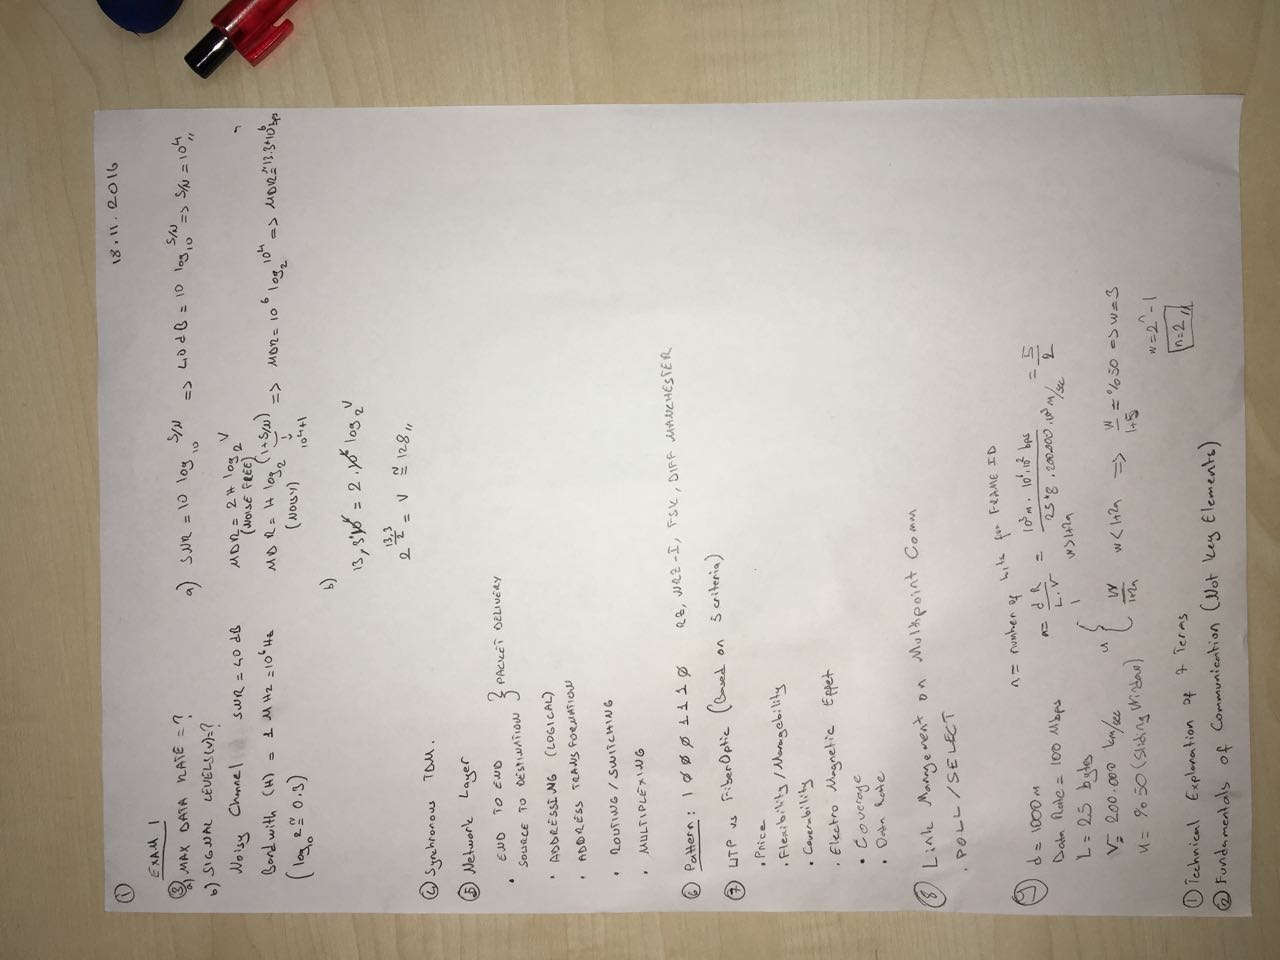 ① 18.11.2016
EXAM 1
③
a) MAX DATA RATE = ?
b) SIGNAL LEVELS(V)=?
Noisy Channel SNR = 40 dB
Bandwith (H) = 1 MHz = 10⁶ Hz
(log₁₀2 ≅ 0.3)
a) SNR = 10 log₁₀ S/N => 40 dB = 10 log₁₀ S/N => S/N = 10⁴,,
MDR = 2H log₂ V
(NOISE FREE)
MDR = H log₂ (1+S/N) => MDR = 10⁶ log₂ 10⁴ => MDR ≅ 13.3*10⁶ bps
(NOISY) ↓
10⁴+1
b)
13,3*10⁶ = 2.10⁶ log₂ V
2^(13,3/2) = V ≅ 128,,
④ Synchronous TDM.
⑤ Network Layer
• END TO END
SOURCE TO DESTINATION } PACKET DELIVERY
• ADDRESSING (LOGICAL)
• ADDRESS TRANSFORMATION
• ROUTING / SWITCHING
• MULTIPLEXING
⑥ Pattern : 1 0 0 0 1 1 1 0 RZ, NRZ-I, FSK, DIFF MANCHESTER
⑦ UTP vs FiberOptic (Based on 5 criteria)
• Price
• Flexibility / Managebility
• Coverability
• Electro Magnetic Effet
• Coverage
• Data Rate
⑧ Link Management on Multipoint Comm
• POLL / SELECT
⑨
d = 1000 m
Data Rate = 100 Mbps
L = 25 bytes
V = 200.000 km/sec
u = %50 (Sliding Window)
n = number of bits for FRAME ID
a = dR/L.V = 10³m. 10⁶.10² bps/25*8 .200.000 .10³ m/sec = 5/2
u { 1 w>1+2a
w/1+2a w<1+2a => w/1+5 = %50 => w=3
w=2ⁿ-1
n=2,,
① Technical Explanation of 7 Terms
② Fundamentals of Communication (Not Key Elements)